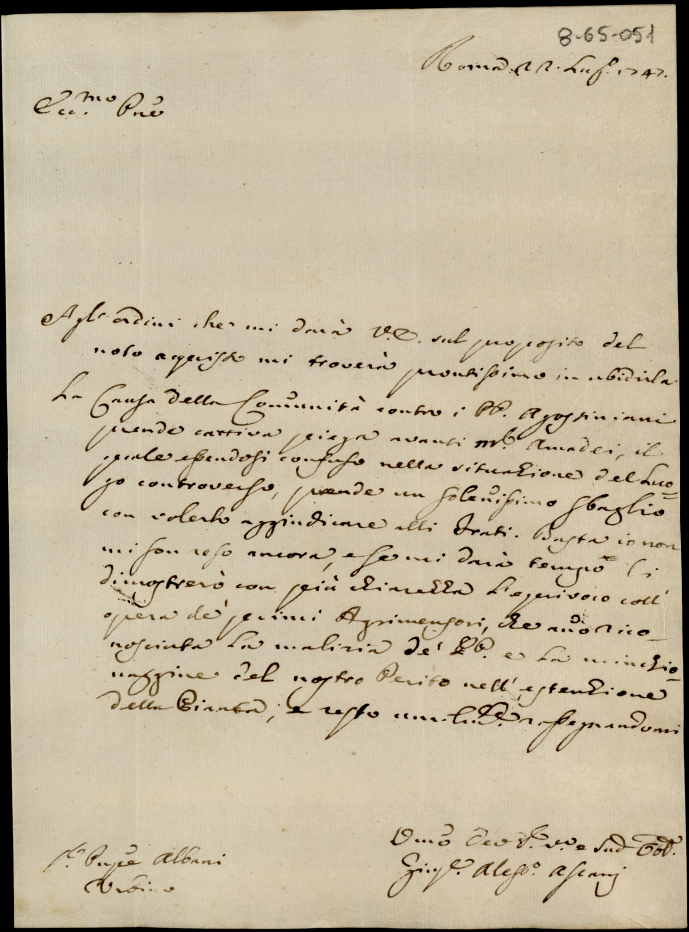 8-65-051
Roma 22. Lug.o 1747.
Ecc.mo Pñe
Agl'ordini che mi darà V.E. sul proposito del
noto acquisto mi troverà prontissimo in ubidirla
La Causa della Comunità contro i PP. Agostiniani
prende cattiva piega avanti Amadei, il
quale essendosi confuso nella situazione del Luo-
go controverso, prende un solennissimo sbaglio
con volerlo aggiudicare alli Frati. Basta io non
mi son reso ancora, e se mi darà tempo li
dimostrerò con più chiarezza l'equivoco coll'
opera de' primi Agrimensori, che añorico-
nosciuta la malizia de' PP. e la minchio-
naggine del nostro Perito nell'estenzione
della Pianta; e resto rassegnandomi
Albani
Urbino